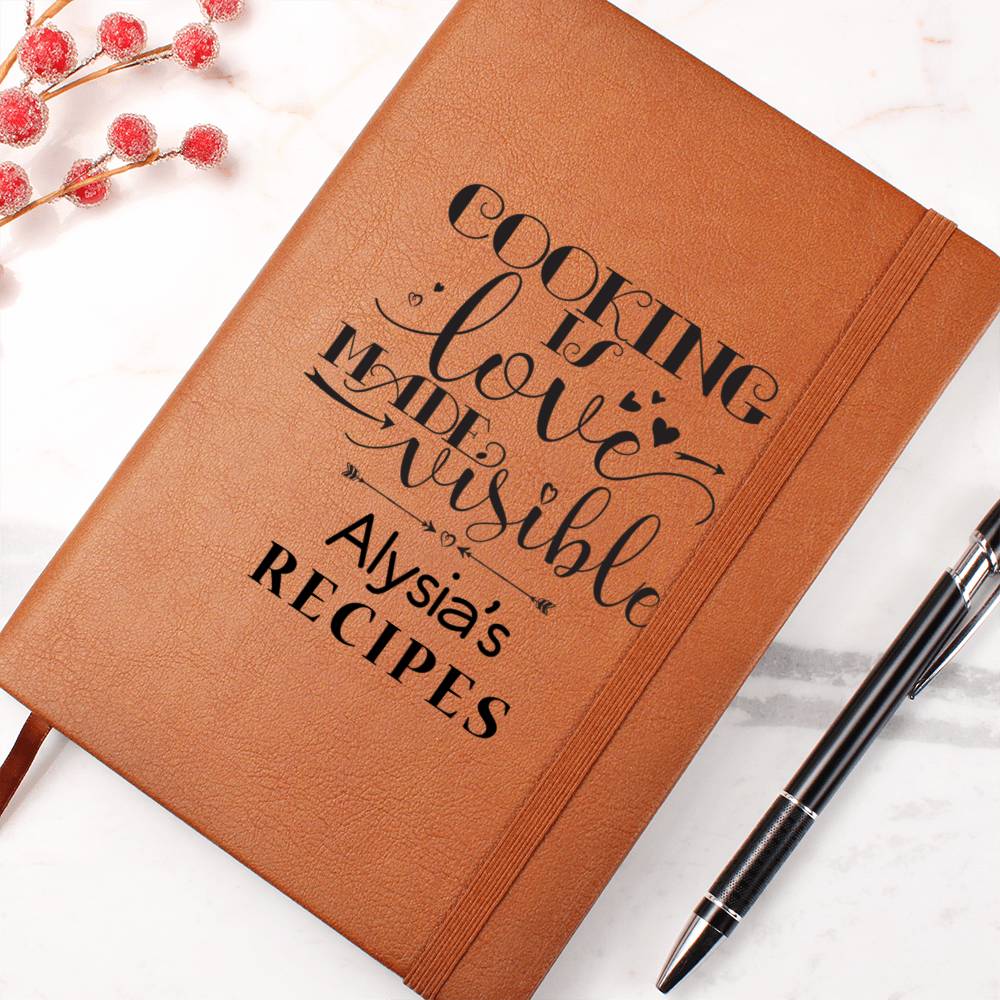 COOKING
IS
love
MADE
visible
Alysia's
RECIPES